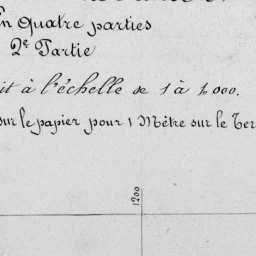 en quatre parties
2e Partie
it à l'échelle de 1 à 1,000.
sur le papier pour 1 Mètre sur le Ter
1200